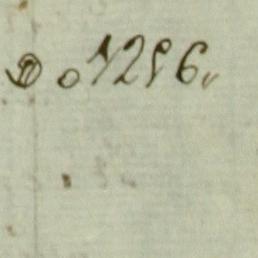 D o 1256